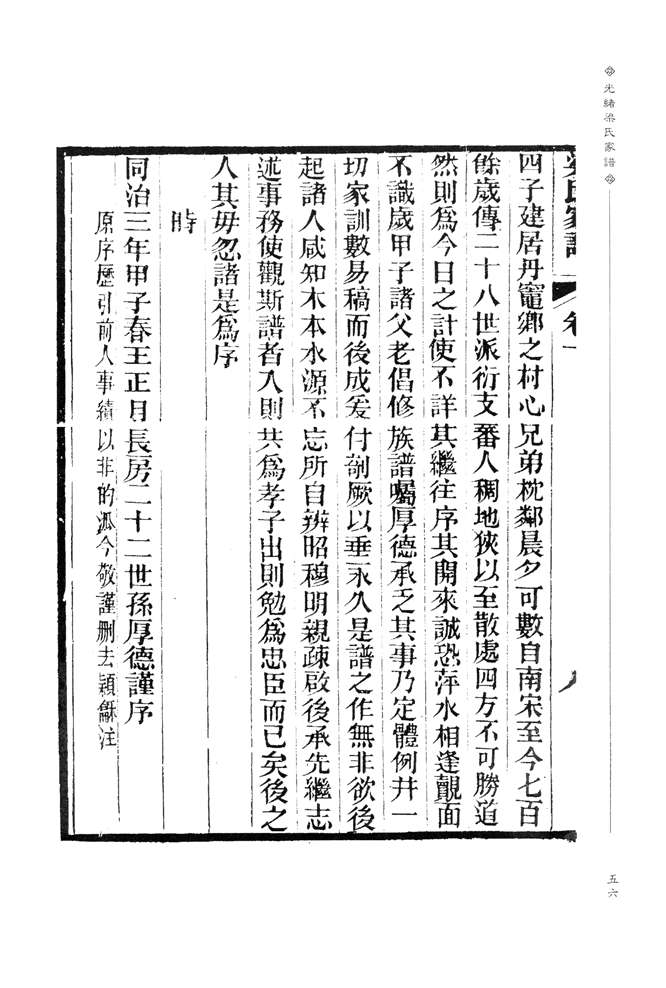 光緒梁氏家譜
梁氏家譜 卷一 八
四子建居丹竈鄉之村心兄弟枕鄰晨夕可數自南宋至今七百
餘歲傳二十八世派衍支蕃人稠地狹以至散處四方不可勝道
然則爲今日之計使不詳其繼往序其開來誠恐萍水相逢覿面
不識歲甲子諸父老倡修族譜囑厚德承乏其事乃定體例井一
切家訓數易稿而後成爰付剞厥以垂永久是譜之作無非欲後
起諸人咸知木本水源不忘所自辨昭穆明親疎啟後承先繼志
述事務使觀斯譜者入則共爲孝子出則勉爲忠臣而已矣後之
人其毋忽諸是爲序
時
同治三年甲子春王正月長房二十二世孫厚德謹序
原序歷引前人事績以非的派今敬謹删去穎龢注
五六